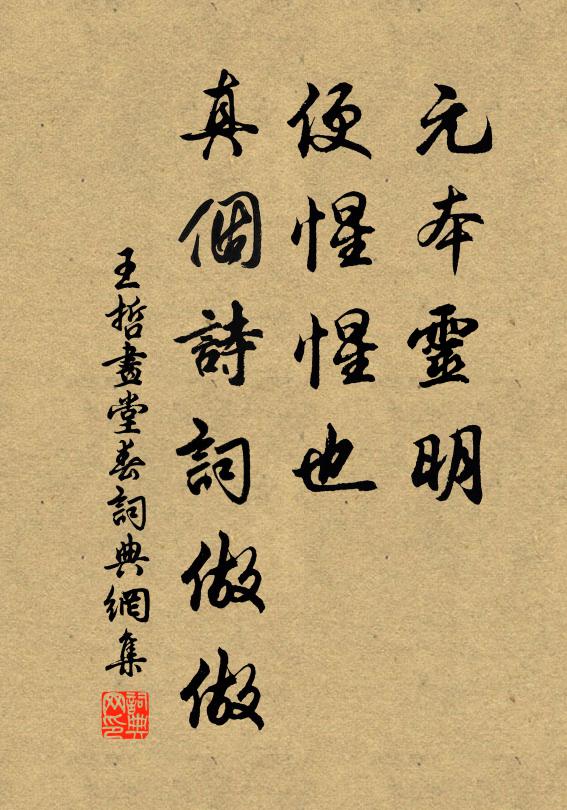 元本靈明
便惺惺也
真個詩詞做做
王哲畫堂春詞典網集
詞典网印